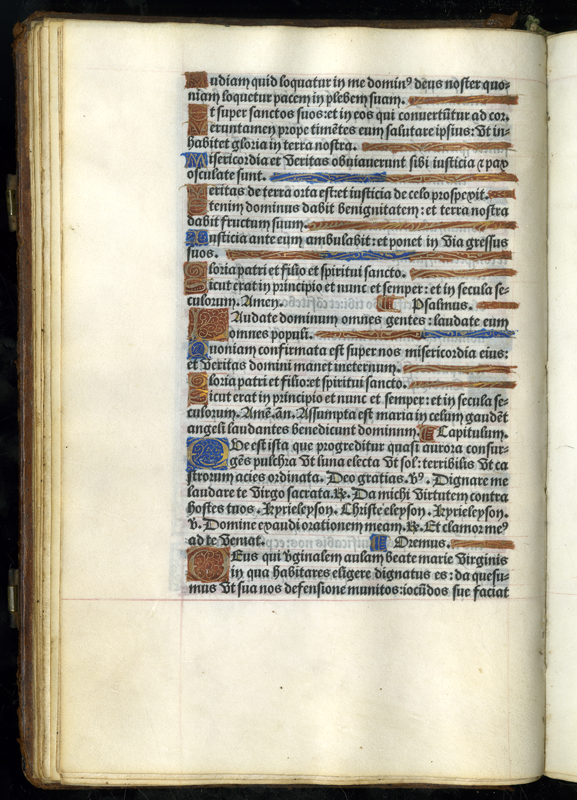 Audiam quid loquatur in me domin⁹ deus noster quo-
niam loquetur pacem in plebem suam.
Et super sanctos suos: et in eos qui convertūtur ad cor.
Veruntamen prope timētes eum salutare ipsius: Vt in-
habitet gloria in terra nostra.
Misericordia et Veritas obviaverunt sibi iusticia ⁊ pax
osculate sunt.
Veritas de terra orta est: et iusticia de celo prospexit.
Etenim dominus dabit benignitatem: et terra nostra
dabit fructum suum.
Iusticia ante eum ambulabit: et ponet in Via gressus
suos.
Gloria patri et filio et spiritui sancto.
Sicut erat in principio et nunc et semper: et in secula se-
culorum. Amen. Psalmus.
Laudate dominum omnes gentes: laudate eum
omnes populi.
Quoniam confirmata est super nos misericordia eius:
et Veritas domini manet ineternum.
Gloria patri et filio: et spiritui sancto.
Sicut erat in principio et nunc et semper: et in secula se-
culorum. Amē. añ. Assumpta est maria in celum gaudēt
angeli laudantes benedicunt dominum. Capitulum.
Que est ista que progreditur quasi aurora consur-
gēs pulchra Vt luna electa Vt sol: terribilis Vt ca
strorum acies ordinata. Deo gratias. V⁹. Dignare me
laudare te Virgo sacrata. ℟. Da michi Virtutem contra
hostes tuos. Kyrieleyson. Christe eleyson. Kyrieleyson.
v. Domine exaudi orationem meam. ℟. Et clamor me⁹
ad te Veniat. Oremus.
Deus qui v̄ginalem aulam beate marie Virginis
in qua habitares eligere dignatus es: da quesu-
mus Vt sua nos defensione munitos: iocūdos sue faciat